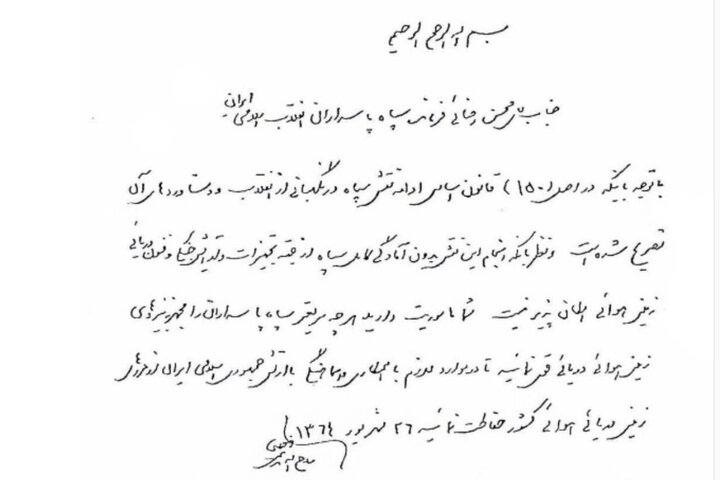 بسم الله الرحمن الرحیم
جناب آقای محسن رضائی فرمانده سپاه پاسداران انقلاب اسلامی ایران
با توجه باینکه در اصل (۱۵۰) قانون اساسی ادامه نقش سپاه در نگهبانی از انقلاب و دستاوردهای آن
تصریح شده است و نظر باینکه انجام این نقش بدون آمادگی کامل سپاه از جهت تجهیزات و فنون دریائی
زمینی هوائی امکان پذیر نیست شما ماموریت دارید هر چه سریعتر سپاه پاسداران را مجهز به نیروهای
زمینی هوائی دریائی قوی نمائید تا در موارد لازم با همکاری و هماهنگی با ارتش جمهوری اسلامی ایران از مرزهای
زمینی دریائی هوائی کشور حفاظت نمائید ۲۶ شهریور ۱۳۶۴